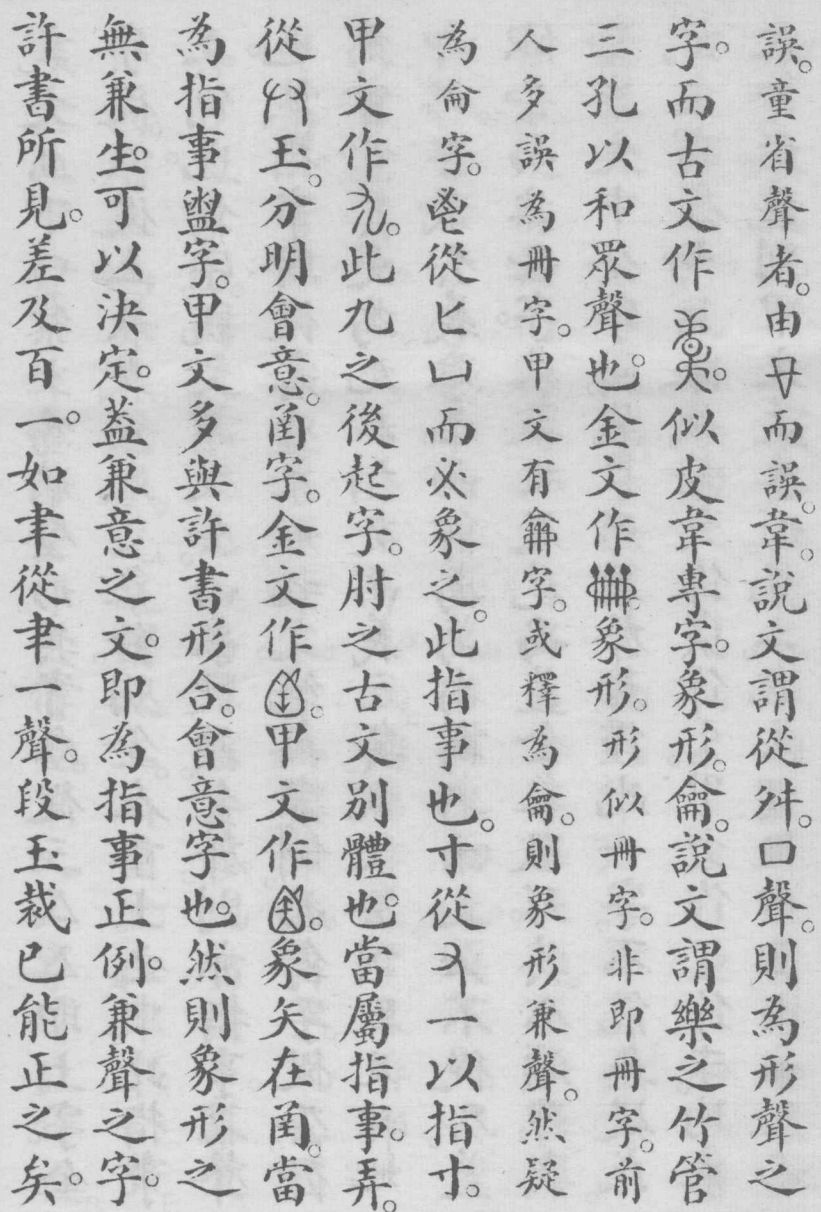 誤。童省聲者。由而誤。韋。說文謂從舛。囗聲。則為形聲之
字。而古文作。似皮韋專字。象形。龠。說文謂樂之竹管
三孔以和眾聲也。金文作。象形。形似冊字。非即冊字。前
人多誤為冊字。甲文有字。或釋為龠。則象形兼聲。然疑
為侖字。鬯從匕凵而象之。此指事也。寸從又一以指寸。
甲文作。此九之後起字。肘之古文別體也。當屬指事。弄。
從玉。分明會意。函字。金文作。甲文作。象矢在函。當
為指事盥字。甲文多與許書形合。會意字也。然則象形之
無兼生。可以決定。蓋兼意之文。即為指事正例。兼聲之字。
許書所見。差及百一。如聿從𦘒一聲。段玉裁已能正之矣。